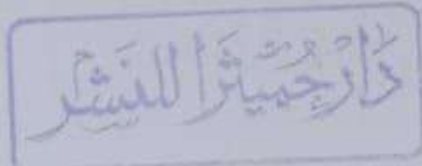 دَارْ حُمَيْثَرَا للنَشْر